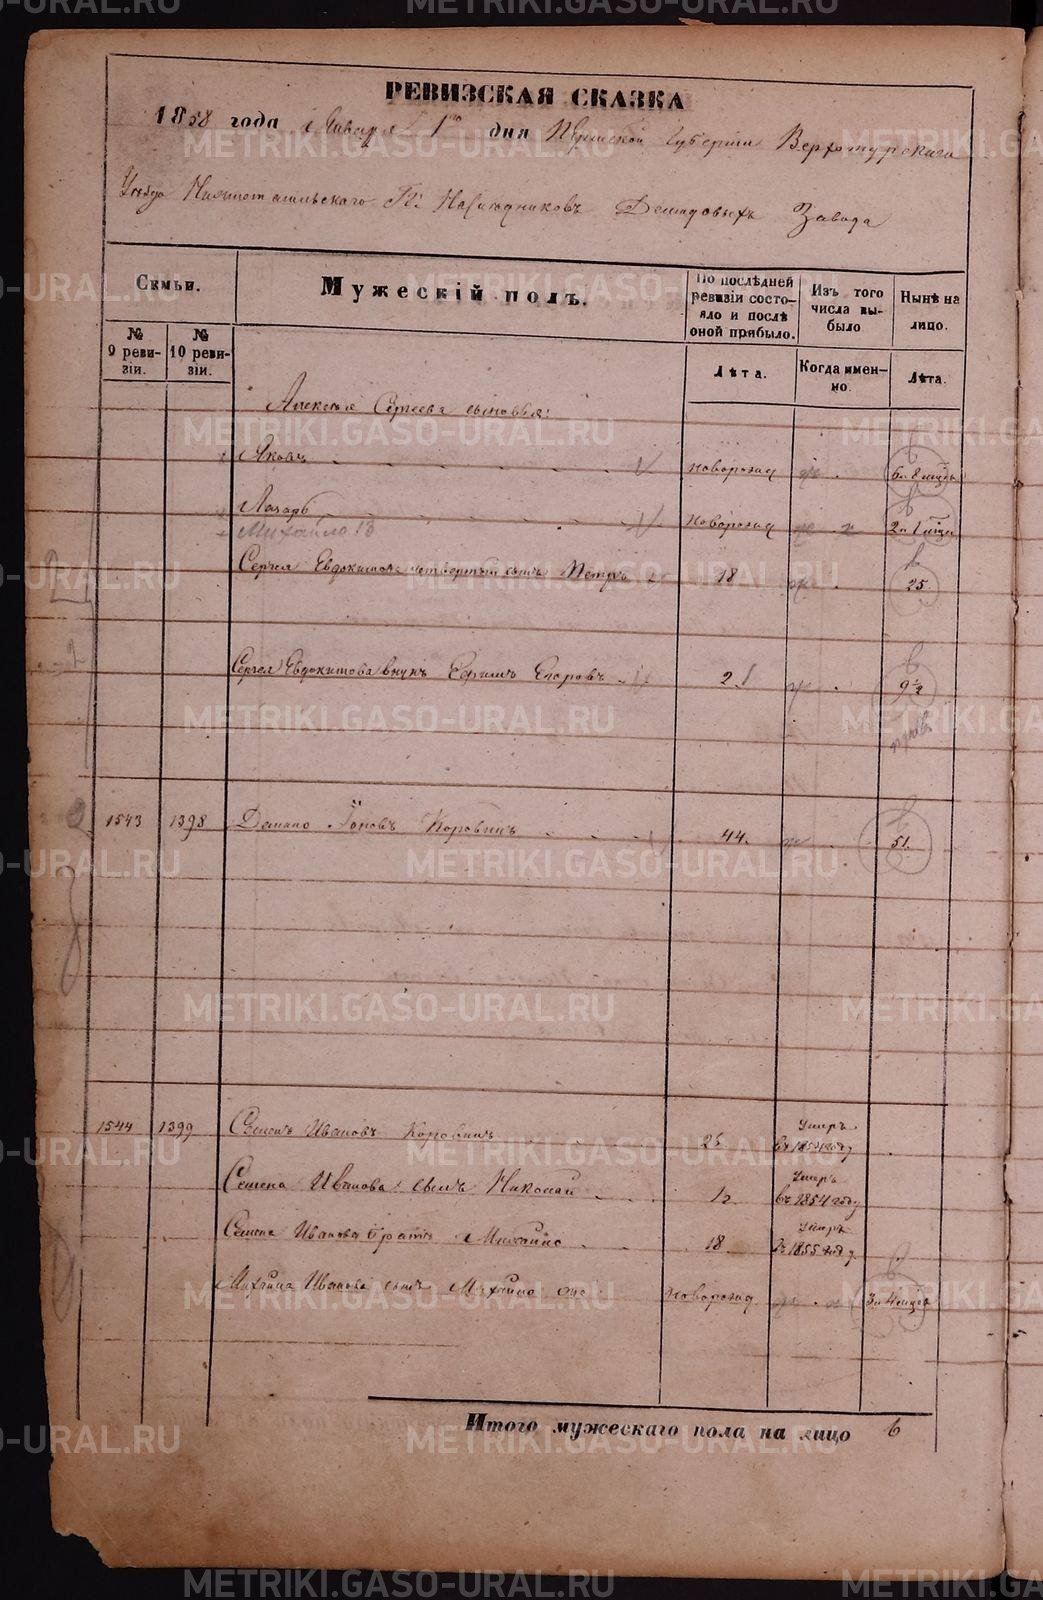 РЕВИЗСКАЯ СКАЗКА
1858 года Января 1го дня Пермской Губернии Верхотурскаго
Уѣзда Нижнетагильскаго Гг. Наслѣдниковъ Демидовыхъ Завода
Семьи.
Мужескій полъ.
По послѣдней ревизіи состояло и послѣ оной прибыло.
Изъ того числа выбыло
Нынѣ на лицо.
№ 9 ревизіи.
№ 10 ревизіи.
Лѣта.
Когда именно.
Лѣта.
Алексѣя Сергеева сыновья:
Яковъ новорожд 6 и 8 мѣсѣ
Лазарь новорожд 2 и 1 мѣсѣ
Михайло 13
Сергея Евдокимова четвертый сынъ Петръ 18 25.
Сергея Евдокимова внукъ Ефимъ Егоровъ 2. 9½
1543 1398 Демидъ Іоновъ Коровинъ 44. 51.
1544 1399 Семенъ Ивановъ Коровинъ 25 Умеръ
въ 1854 году
Семена Иванова сынъ Николай 1½ Умеръ
въ 1854 году
Семена Иванова братъ Михайло 18 Умеръ
въ 1855 году
Михайла Иванова сынъ Михайло же новорожд 3 и 4 мѣсѣ
Итого мужескаго пола на лицо 6
METRIKI.GASO-URAL.RU